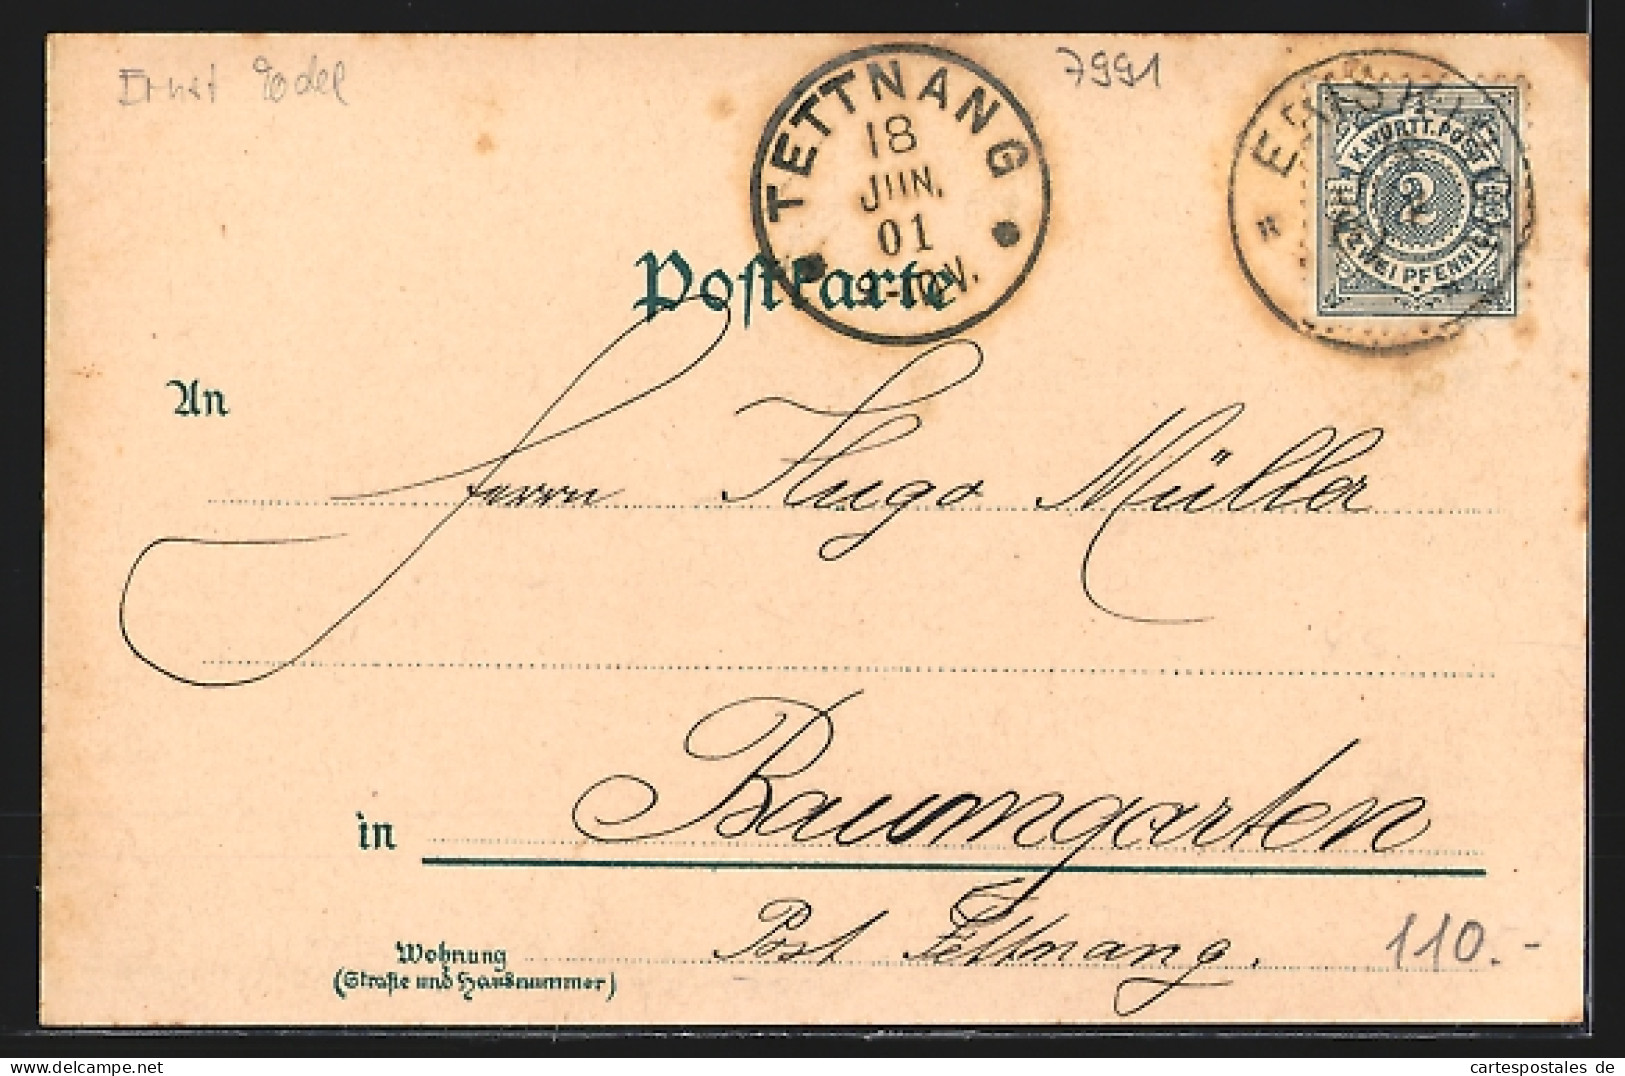 Ernst Edel
7991
TETTNANG
18
JUN.
01
K. WÜRTT. POST
2
ZWEI PFENNIG
Postkarte
An
Herrn Hugo Müller
in Baumgarten
Post Tettnang.
110.-
Wohnung
(Straße und Hausnummer)
cartespostales de